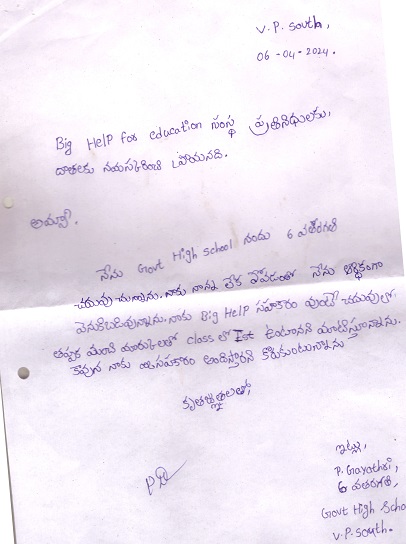 V.P. South,
06-04-2024.
Big Help for education సంస్థ ప్రతినిధులకు,
దాతలకు నమస్కరించి వ్రాయునది.
అమ్మా.
నేను Govt High school నందు 6 వతరగతి
చదువు చున్నాను. నాకు నాన్న లేక పోవడంతో నేను ఆర్థికంగా
వెనుకబడివున్నాను. నాకు Big Help సహకారం వుంటే చదువులో
మంచి మార్కులతో class లో Ist ఉంటానని మాటిస్తూన్నాను.
కావున నాకు మీ సహకారం అందిస్తారని కోరుకుంటున్నాను
కృతజ్ఞతలతో,
ఇట్లు,
P. Gayathri,
6 వతరగతి,
Govt High Scho
V.P. South.